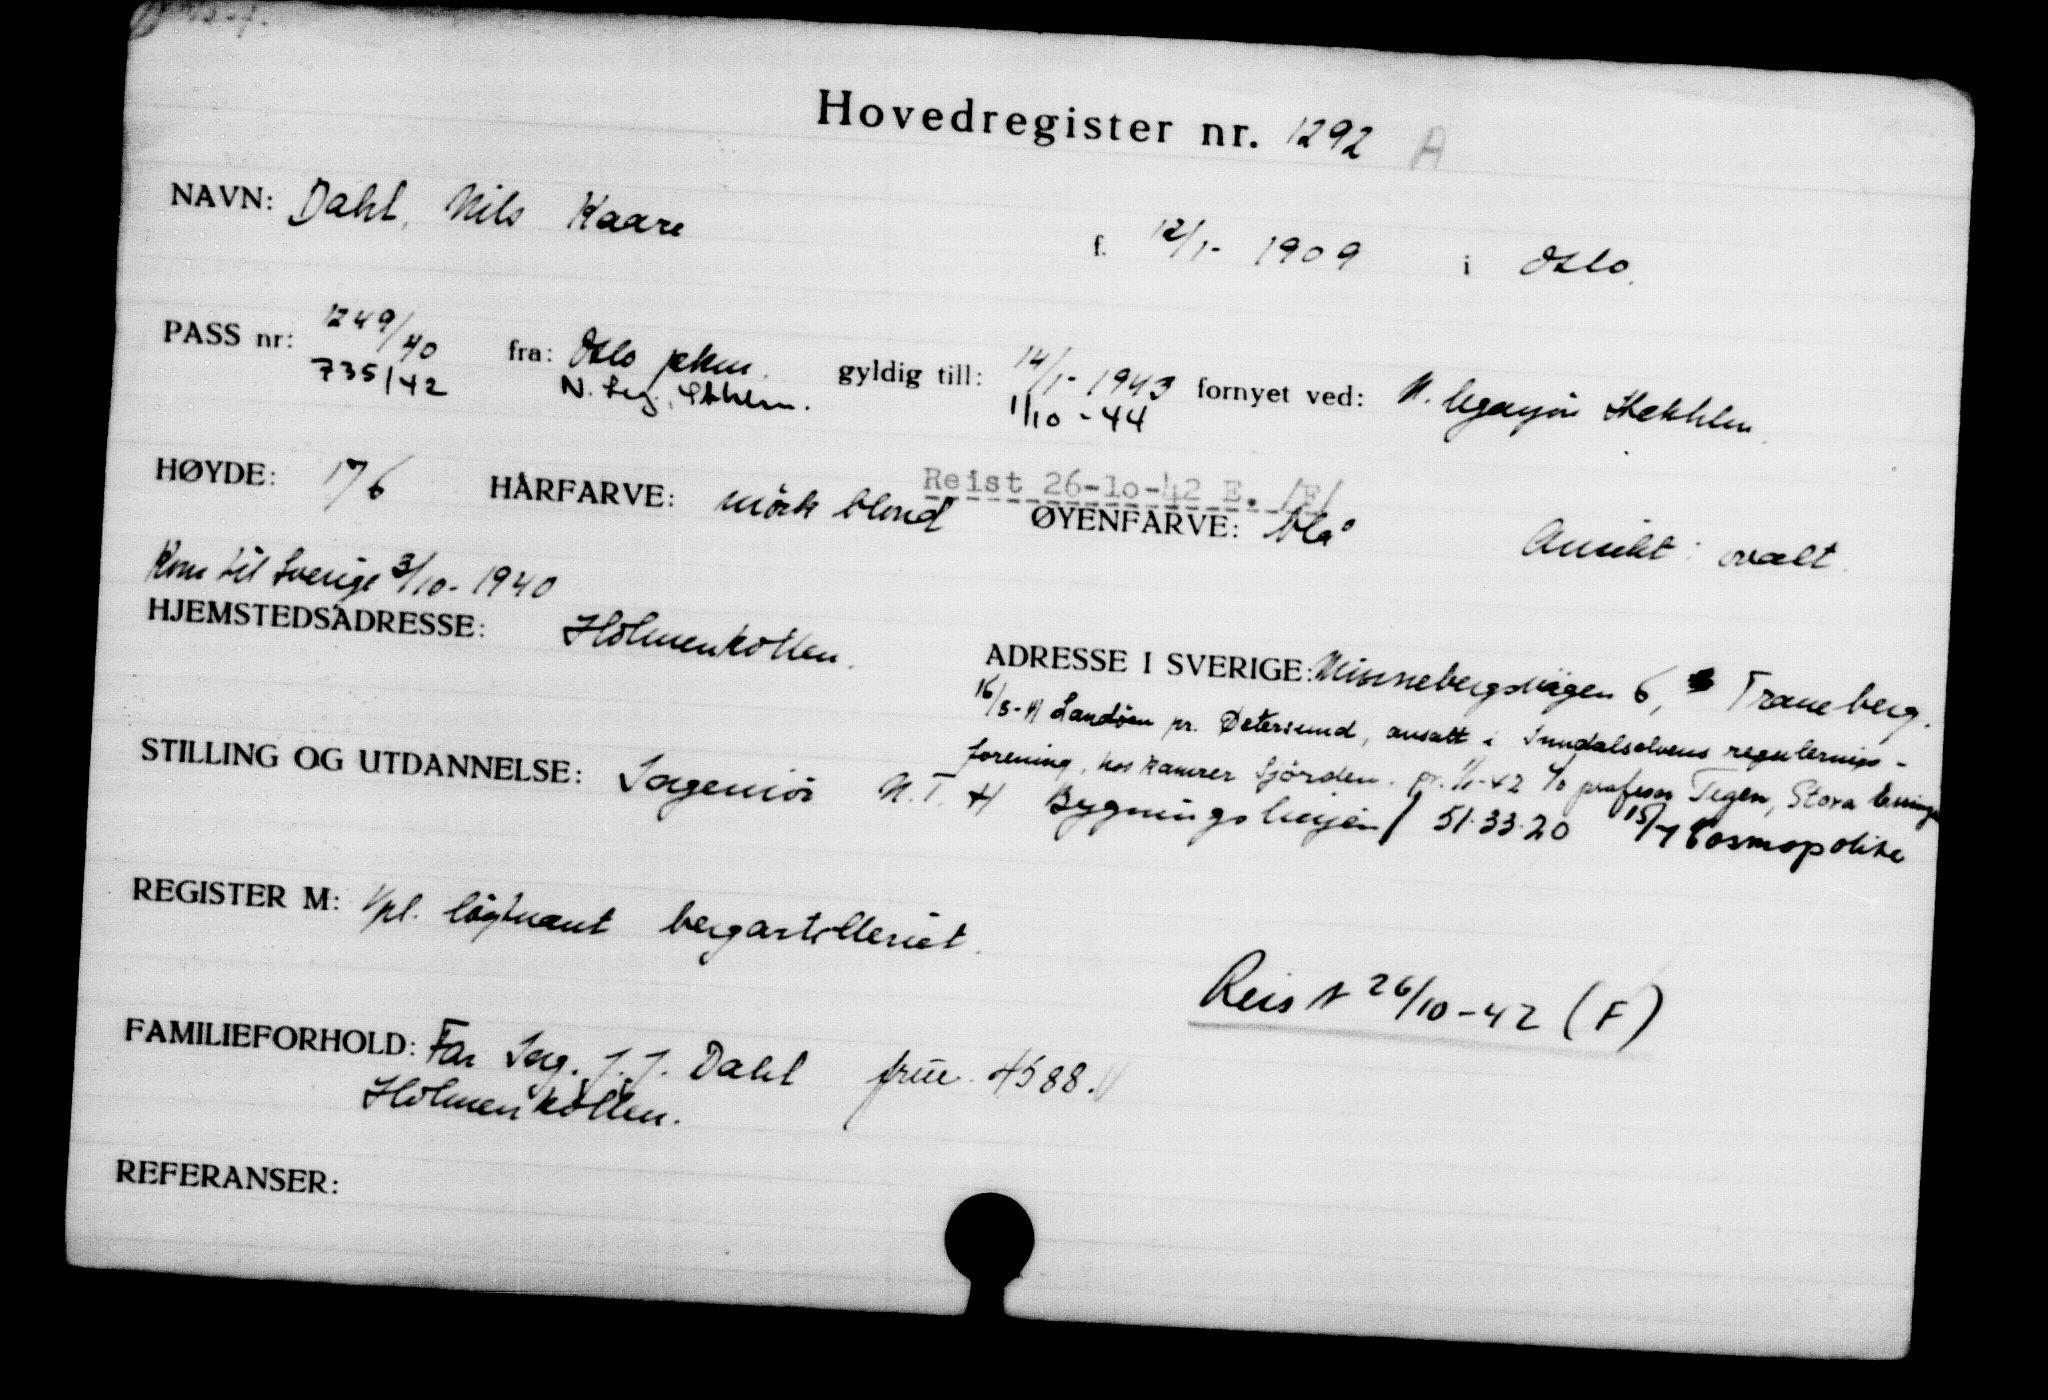 Hovedregister nr. 1292 A
NAVN: Dahl, Nils Kaare f. 12/1- 1909 i Oslo.
PASS nr: 1249/40 fra: Oslo pkm. gyldig till: 14/1- 1943 fornyet ved: N. legasjon Stockhlm
735/42 N. Leg. Sthlm. 1/10 - 44
Reist 26-10-42 E. /F/
HØYDE: 176 HÅRFARVE: mörk blond ØYENFARVE: blå Ansikt: ovalt.
Kom til Sverige 3/10- 1940
HJEMSTEDSADRESSE: Holmenkollen. ADRESSE I SVERIGE: Minnebergsvägen 6, Traneberg.
16/8-41 Landöen pr. ansatt i regulerings-
forening, hos Kamrer Sjördén. pr. 1/1-42 c/o professor Tegen, Stora
STILLING OG UTDANNELSE: Ingeniör N.T.H Bygningslinjen/ 51.33.20 15/4 Cosmopolite
REGISTER M: Vpl. löytnant bergartilleriet.
Reist 26/10-42 (F)
FAMILIEFORHOLD: Far Ing. J. J. Dahl frue 4588.
Holmenkollen.
REFERANSER: